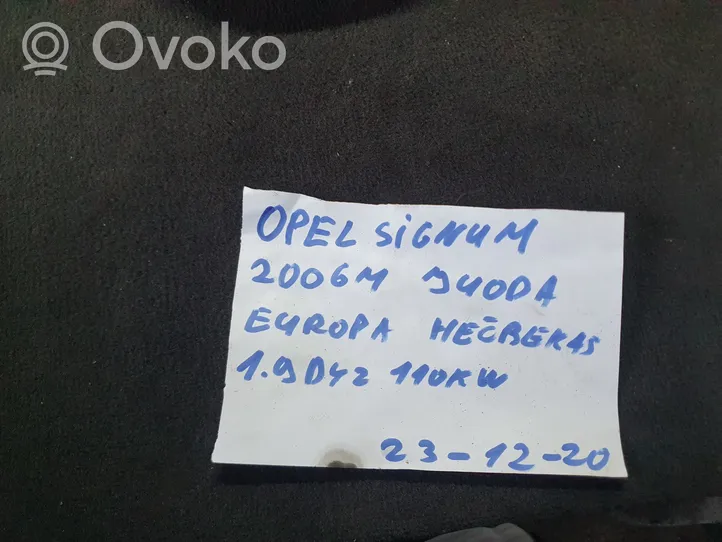 Ovoko
OPEL SiGNUM
2006M JUODA
EUROPA HEČBEKAS
1.9 DYZ 110KW
23-12-20